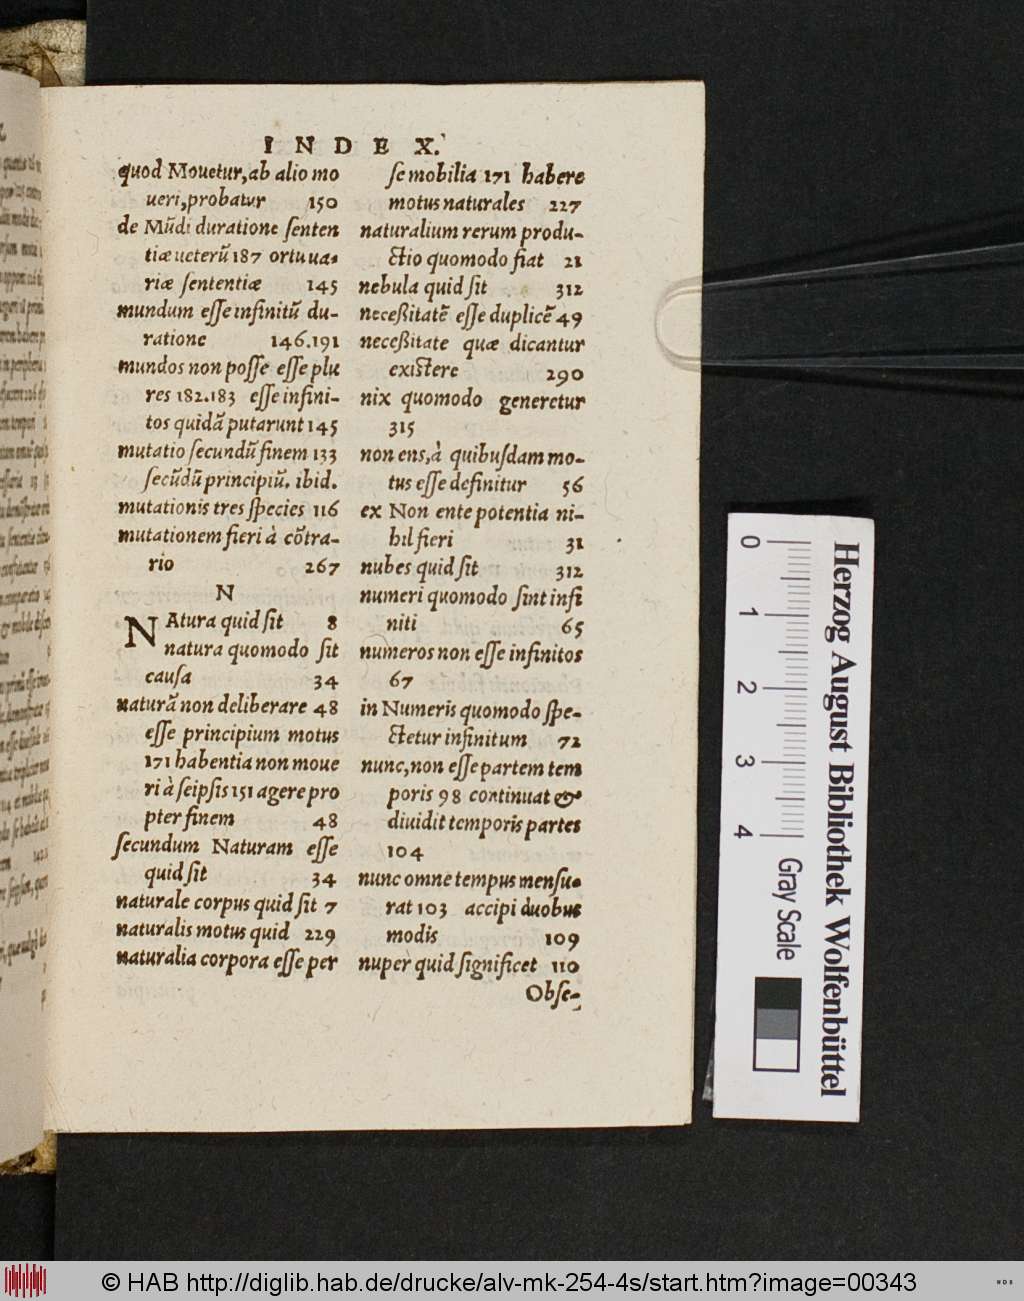 INDEX.
quod Mouetur, ab alio mo
ueri, probatur 150
de Mũdi duratione senten
tiæ ueterũ 187 ortu ua-
riæ sententiæ 145
mundum esse infinitũ du-
ratione 146.191
mundos non posse esse plu
res 182.183 esse infini-
tos quidã putarunt 145
mutatio secundũ finem 133
secũdũ principiũ. ibid.
mutationis tres species 116
mutationem fieri à cõtra-
rio 267
N
NAtura quid sit 8
natura quomodo sit
causa 34
naturã non deliberare 48
esse principium motus
171 habentia non moue
ri à seipsis 151 agere pro
pter finem 48
secundum Naturam esse
quid sit 34
naturale corpus quid sit 7
naturalis motus quid 229
naturalia corpora esse per
se mobilia 171 habere
motus naturales 227
naturalium rerum produ-
ctio quomodo fiat 21
nebula quid sit 312
neceßitatẽ esse duplicẽ 49
neceßitate quæ dicantur
existere 290
nix quomodo generetur
315
non ens, à quibusdam mo-
tus esse definitur 56
ex Non ente potentia ni-
hil fieri 31
nubes quid sit 312
numeri quomodo sint infi
niti 65
numeros non esse infinitos
67
in Numeris quomodo spe-
ctetur infinitum 72
nunc, non esse partem tem
poris 98 continuat &
diuidit temporis partes
104
nunc omne tempus mensu-
rat 103 accipi duobus
modis 109
nuper quid significet 110
Obse-
0
1
2
3
4
Herzog August Bibliothek Wolfenbüttel
Gray Scale
© HAB http://diglib.hab.de/drucke/alv-mk-254-4s/start.htm?image=00343